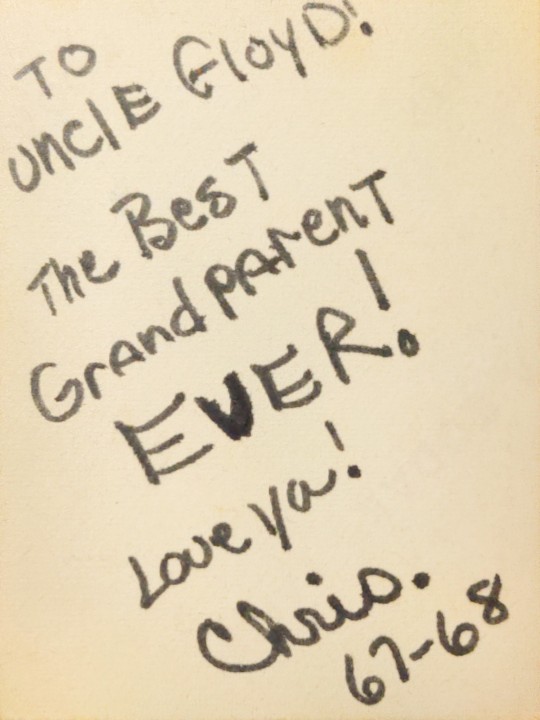 TO
UNClE GloyD!
The BesT
GrandpArenT
EVER!
Love ya!
Chris.
67-68